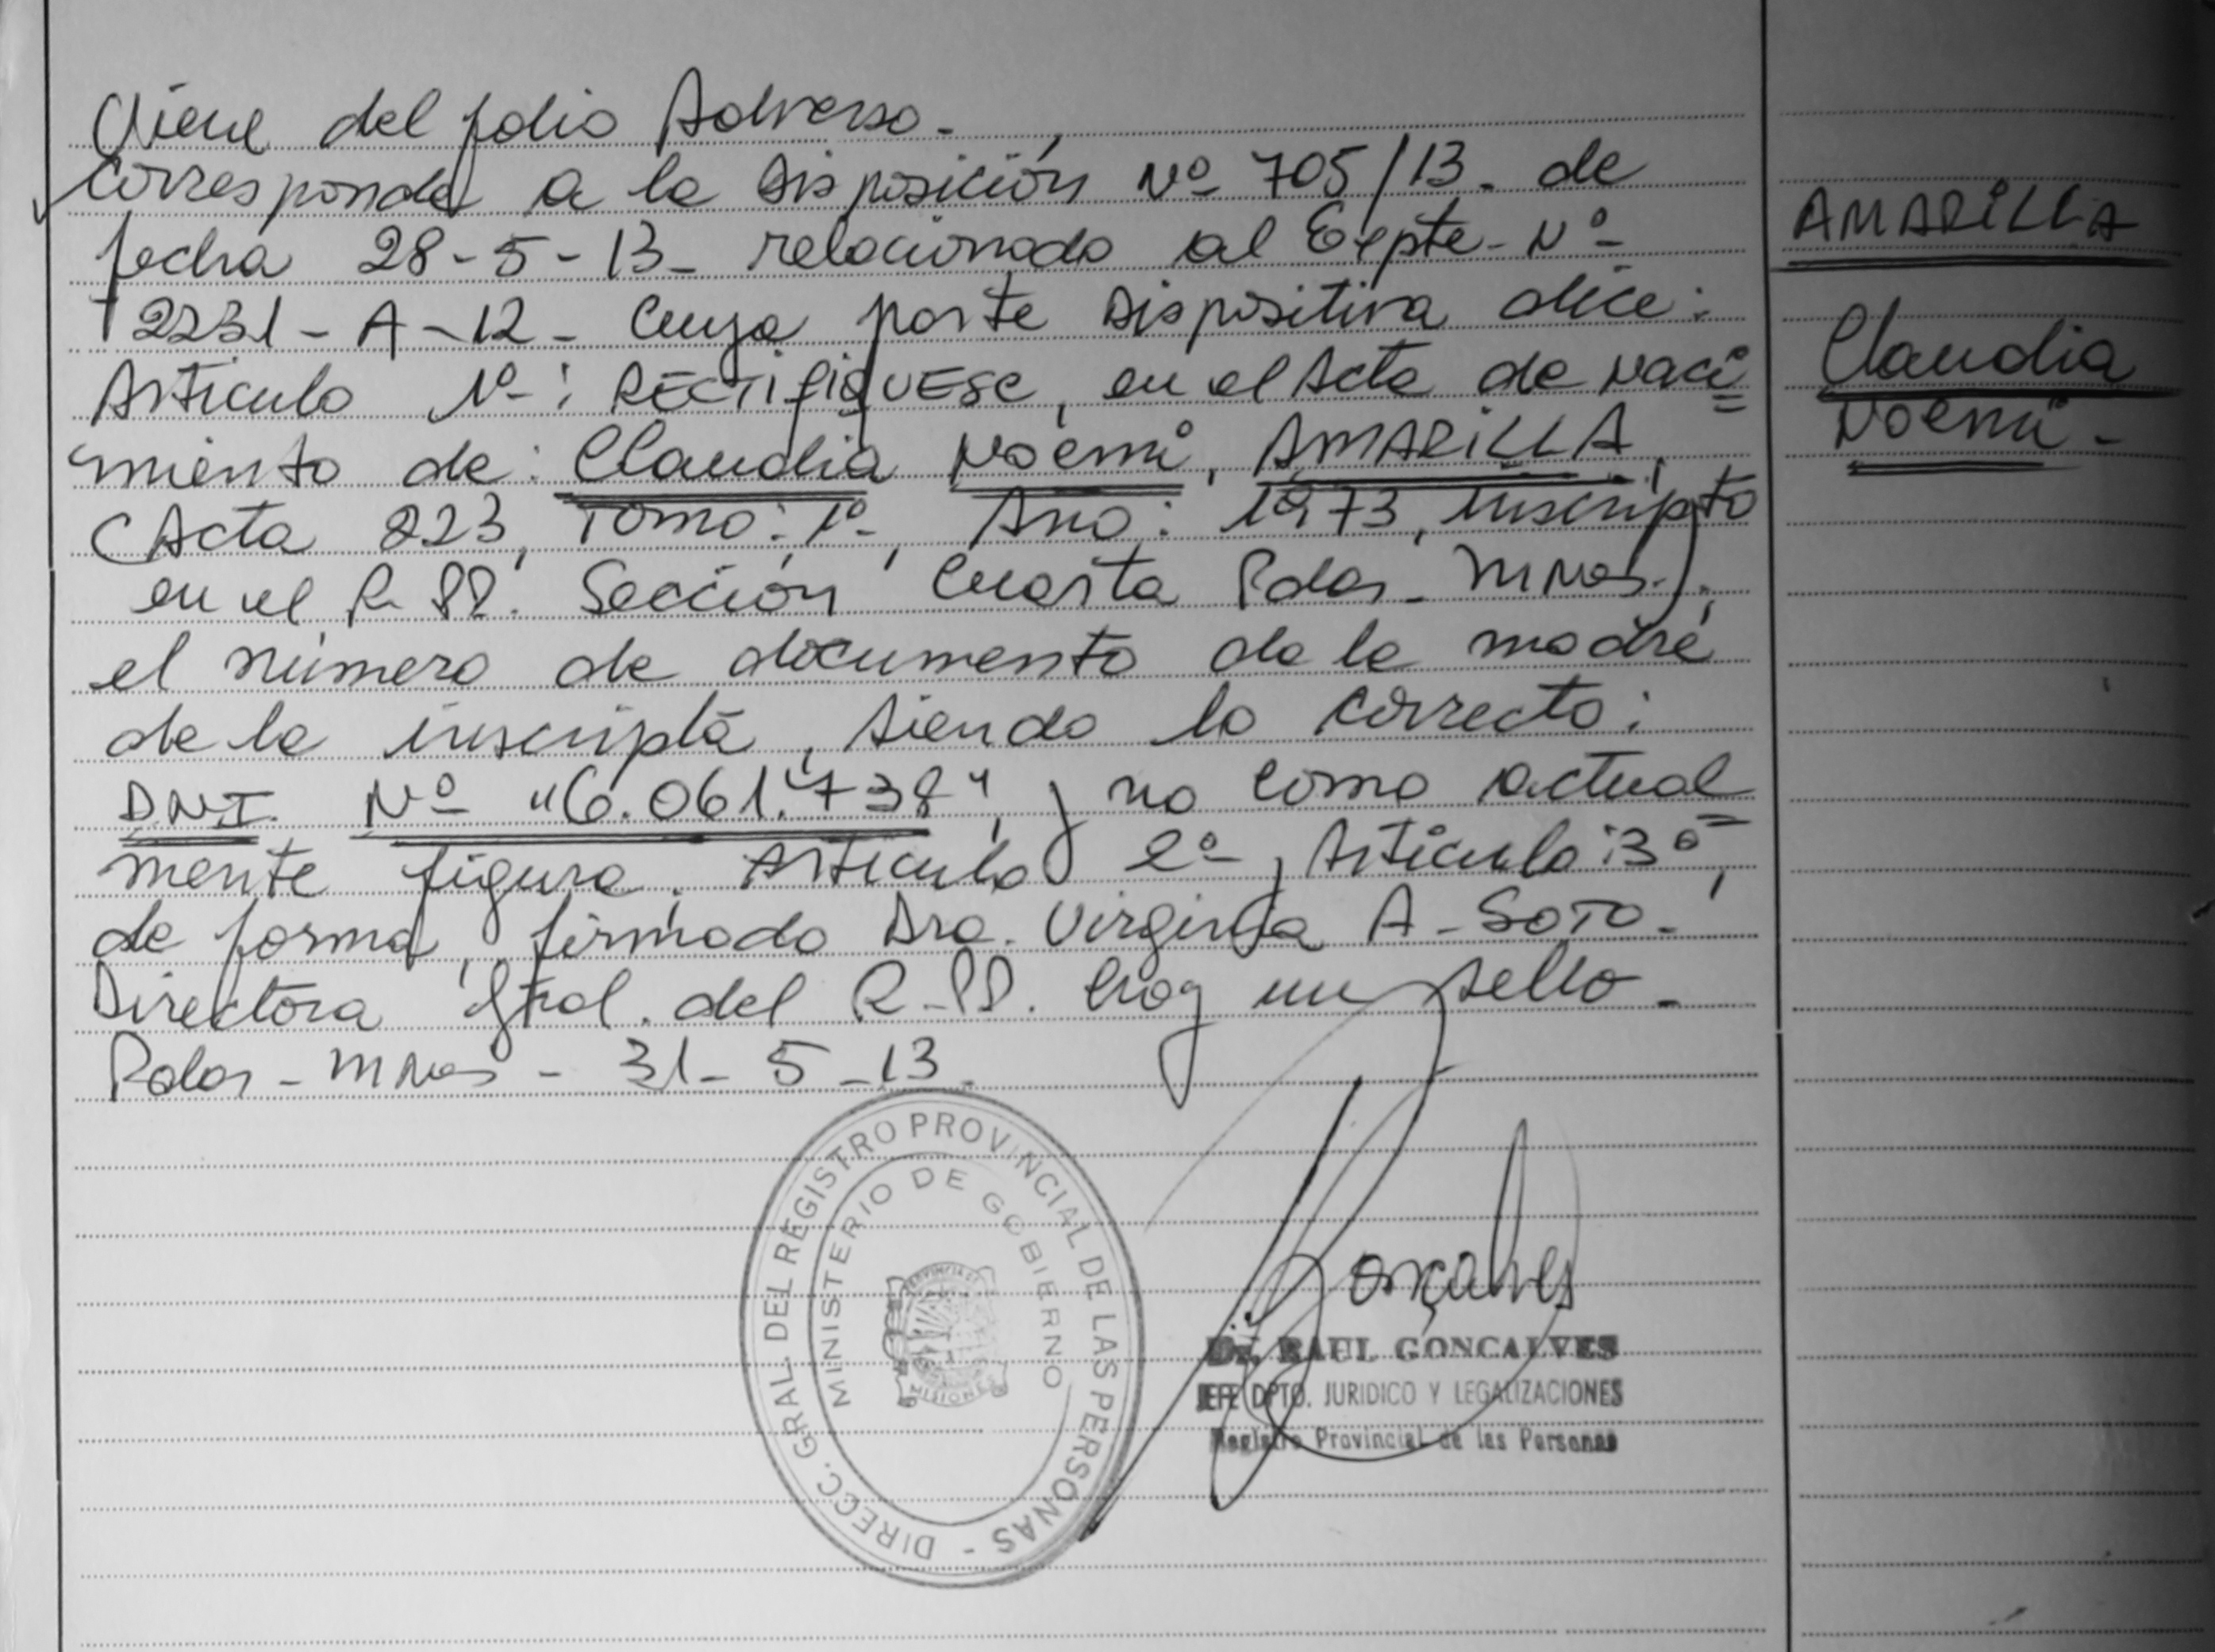 Viene del folio Adverso.-
Corresponde a la Disposición Nº 705/13. de
fecha 28-5-13- relacionado al Expte- Nº-
2231-A-12- Cuya parte Dispositiva dice:
Articulo 1º-: RECTIFIQUESE, en el Acta de Naci=
miento de: Claudia Noemi, AMARILLA,
(Acta 223, Tomo: 1º-, Año: 1973, inscripto
en el R.PP. Sección Cuarta Pdas- Mnes.),
el número de documento de la madre
de la inscripta, siendo lo correcto:
DNI. Nº "6.061.738", y no como actual=
mente figura. Articulo 2º-, Articulo:3º-,
de forma, firmado Dra. Virginia A-SOTO-
Directora Gral. del R-PP. Hay un sello-
Pdas- Mnes - 31- 5 -13-
AMARILLA
Claudia
Noemi-
DIRECC. GRAL. DEL REGISTRO PROVINCIAL DE LAS PERSONAS -
MINISTERIO DE GOBIERNO
PROVINCIA DE
MISIONES
Goncalves
Dr. RAUL GONCALVES
JEFE DPTO. JURIDICO Y LEGALIZACIONES
Registro Provincial de las Personas